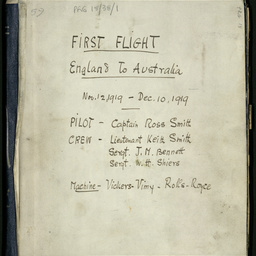 59
FIRST FLIGHT
England To Australia
Nov. 12, 1919 - Dec. 10, 1919
PILOT - Captain Ross Smith
CREW - Lieutenant Keith Smith
Sergt. J. M. Bennett
Sergt. W. H. Shiers
Machine - Vickers-Vimy - Rolls-Royce